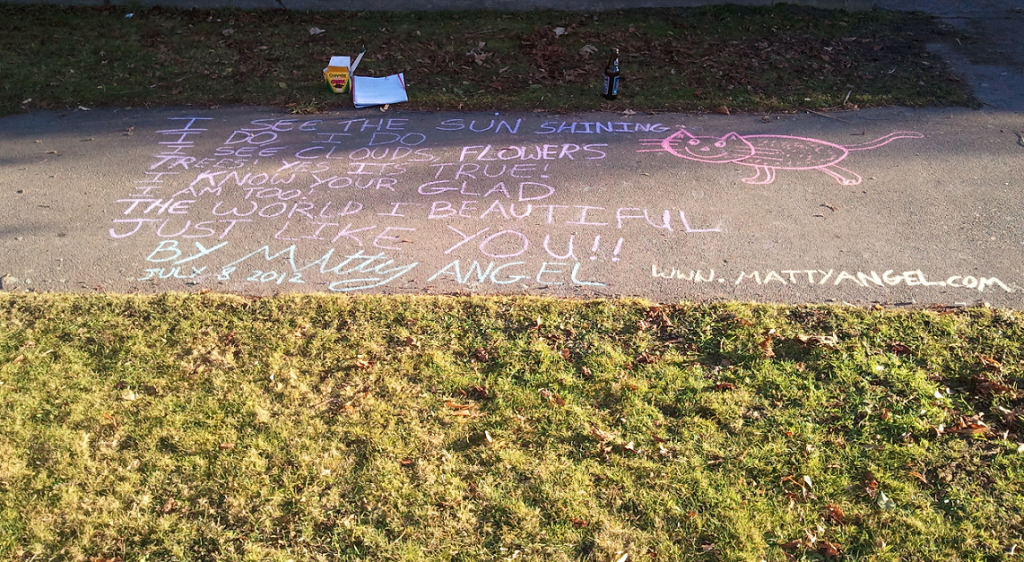 I SEE THE SUN SHINING
I DO IT DO
I SEE CLOUDS, FLOWERS
TREES. YES ITS TRUE!
I KNOW YOUR GLAD
I AM TOO!
THE WORLD I BEAUTIFUL
JUST LIKE YOU!!
BY Matty ANGEL
JULY 8 2012
WWW.MATTYANGEL.COM